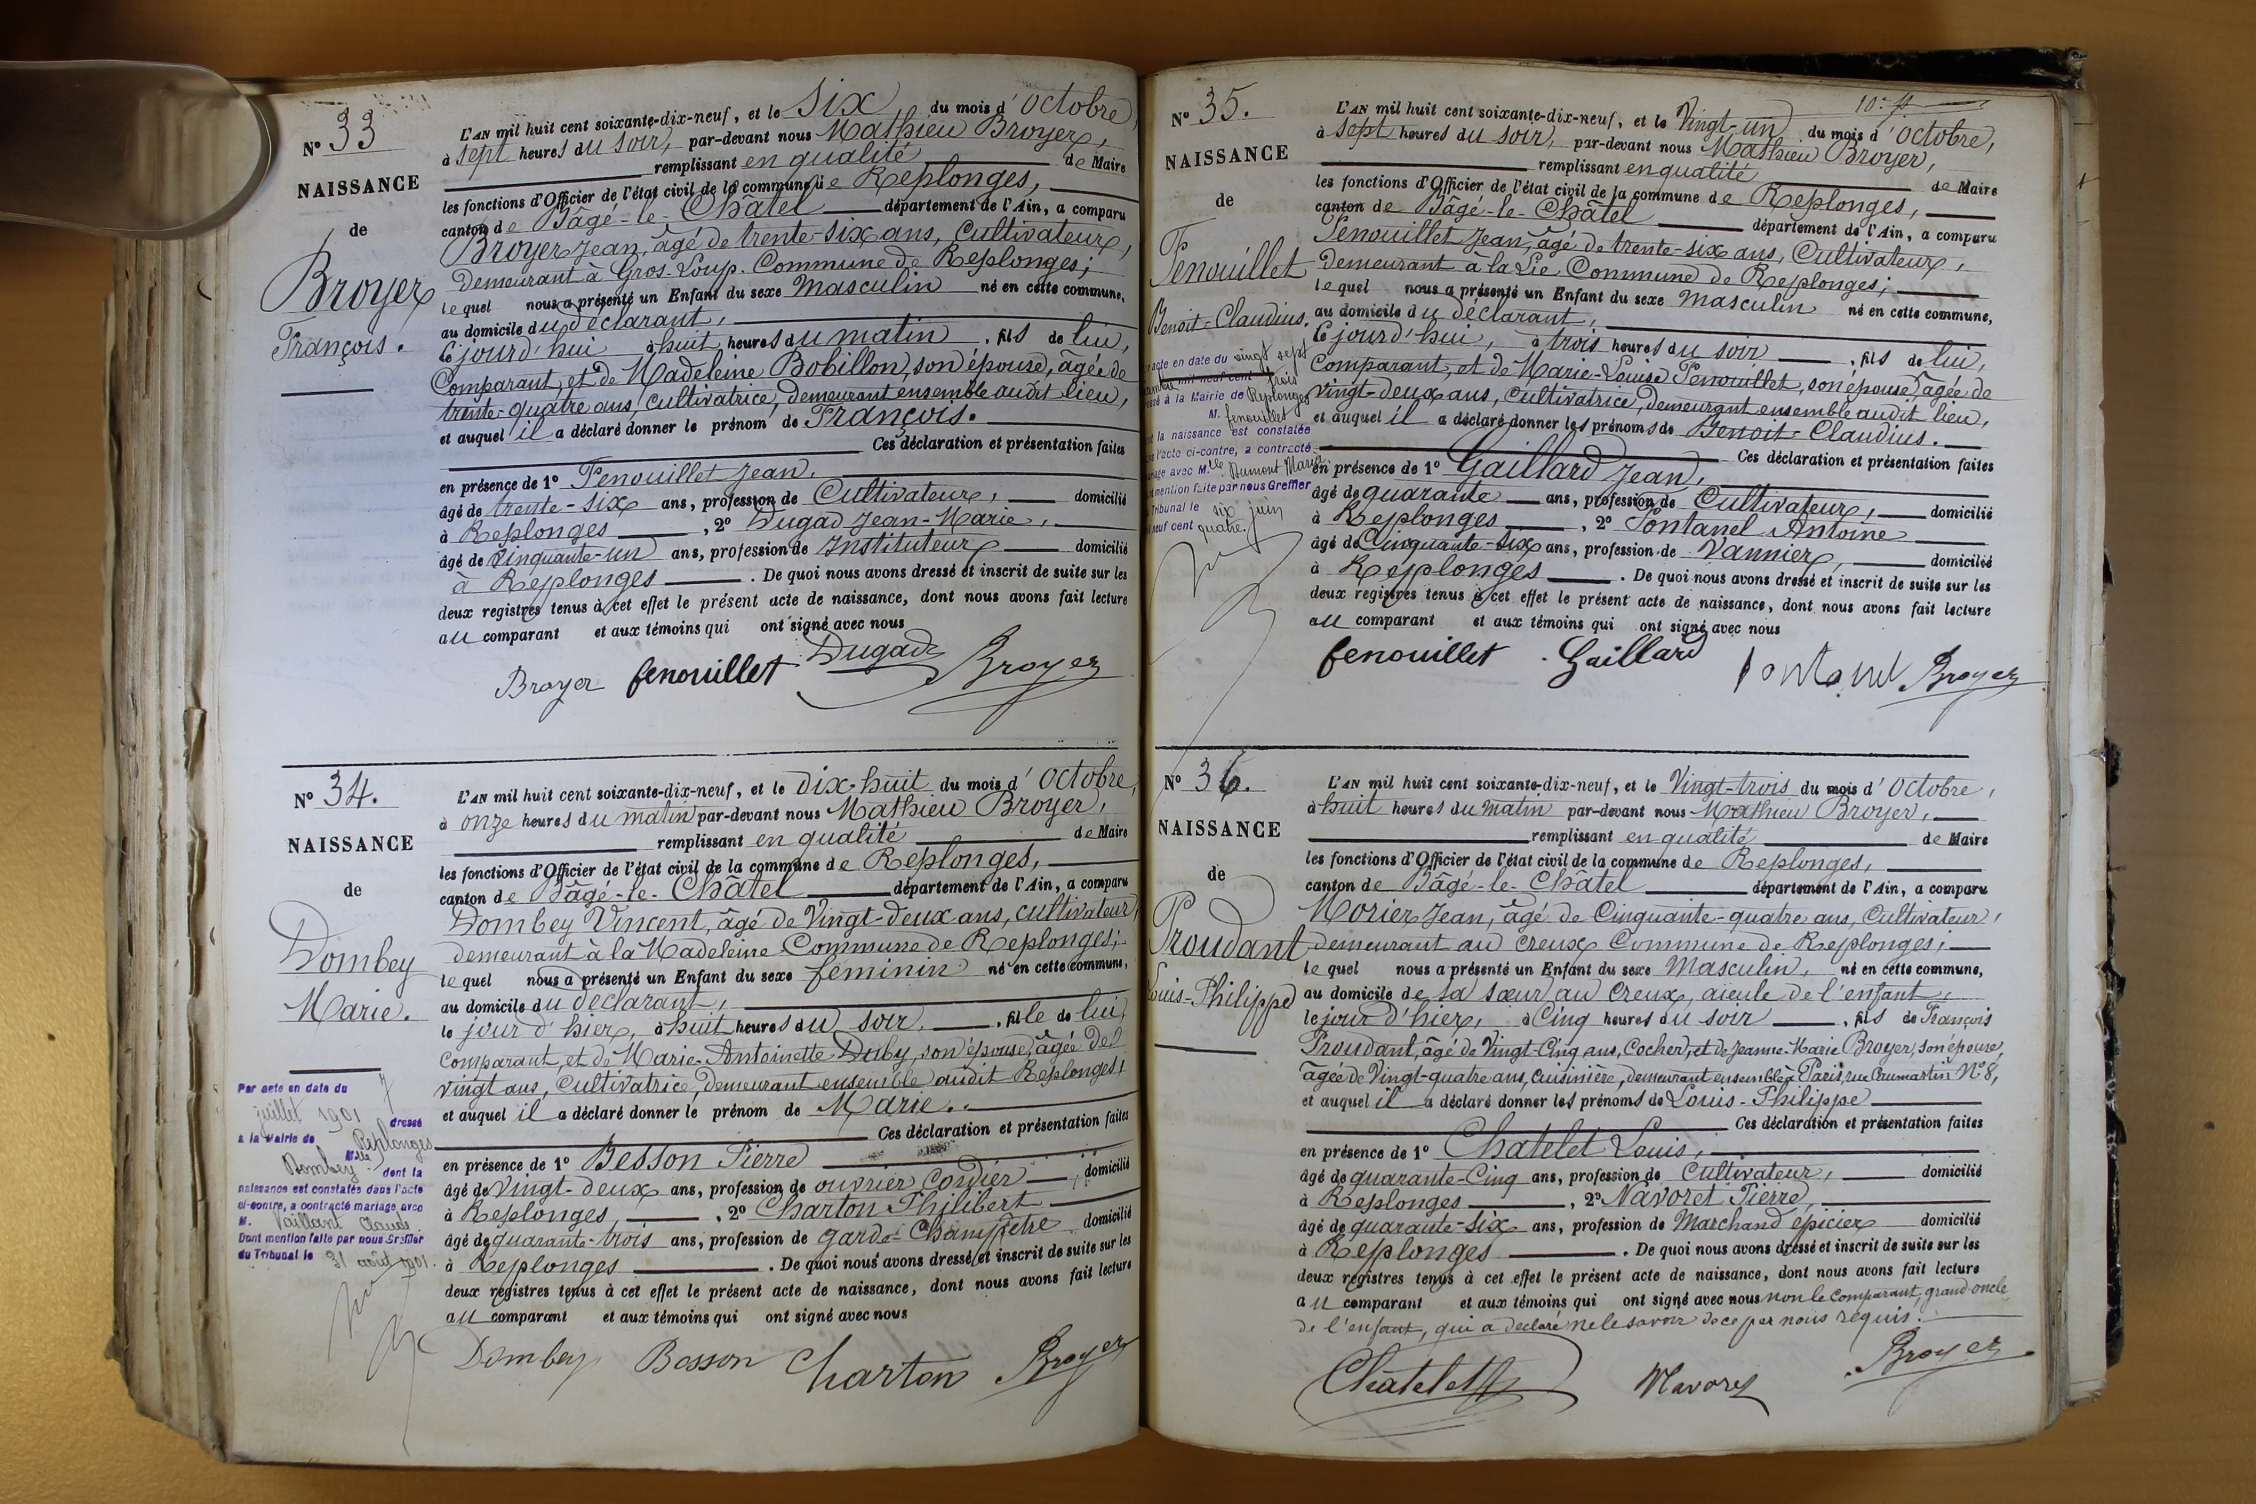 N° 33
NAISSANCE
de
Broyer
François.
L'AN mil huit cent soixante-dix-neuf, et le six du mois d'octobre,
à sept heures du soir, par-devant nous Mathieu Broyer,
remplissant en qualité de Maire
les fonctions d'Officier de l'état civil de la commune de Replonges,
canton de Bâgé-le-Châtel département de l'Ain, a comparu
Broyer Jean, âgé de trente-six ans, Cultivateur,
demeurant à Gros-Loup. Commune de Replonges;
lequel nous a présenté un Enfant du sexe Masculin né en cette commune,
au domicile du déclarant,
Cejourd'hui à huit heures du matin, fils de lui,
Comparant, et de Madeleine Bobillon, son épouse, âgée de
trente-quatre ans, cultivatrice, demeurant ensemble audit lieu,
et auquel il a déclaré donner le prénom de François.
Ces déclaration et présentation faites
en présence de 1° Fenouillet Jean,
âgé de trente-six ans, profession de Cultivateur, domicilié
à Replonges, 2° Dugad Jean-Marie,
âgé de Cinquante-un ans, profession de Instituteur domicilié
à Replonges. De quoi nous avons dressé et inscrit de suite sur les
deux registres tenus à cet effet le présent acte de naissance, dont nous avons fait lecture
au comparant et aux témoins qui ont signé avec nous
Broyer fenouillet Dugad Broyer
N° 34.
NAISSANCE
de
Dombey
Marie.
Par acte en date du 7
juillet 1901 dressé
à la Mairie de Replonges
Mlle Dombey dont la
naissance est constatée dans l'acte
ci-contre, a contracté mariage avec
M. Vaillant Claude
Dont mention faite par nous Greffier
du Tribunal le 31 août 1901.
L'AN mil huit cent soixante-dix-neuf, et le dix-huit du mois d'octobre,
à onze heures du matin par-devant nous Mathieu Broyer,
remplissant en qualité de Maire
les fonctions d'Officier de l'état civil de la commune de Replonges,
canton de Bâgé-le-Châtel département de l'Ain, a comparu
Dombey Vincent, âgé de Vingt-deux ans, cultivateur,
demeurant à la Madeleine Commune de Replonges;
lequel nous a présenté un Enfant du sexe féminin né en cette commune,
au domicile du déclarant,
le jour d'hier, à huit heures du soir, fille de lui,
Comparant, et de Marie-Antoinette Duby, son épouse, âgée de
vingt ans, Cultivatrice, demeurant ensemble audit Replonges,
et auquel il a déclaré donner le prénom de Marie.
Ces déclaration et présentation faites
en présence de 1° Besson Pierre
âgé de Vingt-deux ans, profession de ouvrier Cordier, domicilié
à Replonges, 2° Charton Philibert
âgé de quarante-trois ans, profession de garde-Champêtre domicilié
à Replonges. De quoi nous avons dressé et inscrit de suite sur les
deux registres tenus à cet effet le présent acte de naissance, dont nous avons fait lecture
au comparant et aux témoins qui ont signé avec nous
Dombey Besson Charton Broyer
N° 35.
NAISSANCE
de
Fenouillet
Benoit-Claudius.
acte en date du vingt sept
mil neuf cent trois
à la Mairie de Replonges
M. fenouillet
la naissance est constatée
l'acte ci-contre, a contracté
avec Mlle Dumont Maria
mention faite par nous Greffier
Tribunal le six juin
neuf cent quatre.
L'AN mil huit cent soixante-dix-neuf, et le Vingt-un du mois d'octobre,
à sept heures du soir, par-devant nous Mathieu Broyer,
remplissant en qualité de Maire
les fonctions d'Officier de l'état civil de la commune de Replonges,
canton de Bâgé-le-Châtel département de l'Ain, a comparu
Fenouillet Jean, âgé de trente-six ans, Cultivateur,
demeurant à la Lie Commune de Replonges;
lequel nous a présenté un Enfant du sexe Masculin né en cette commune,
au domicile du déclarant,
Cejourd'hui, à trois heures du soir, fils de lui,
Comparant, et de Marie-Louise Fenouillet, son épouse, âgée de
vingt-deux ans, Cultivatrice, demeurant ensemble audit lieu,
et auquel il a déclaré donner les prénoms de Benoit-Claudius.
Ces déclaration et présentation faites
en présence de 1° Gaillard Jean,
âgé de quarante ans, profession de Cultivateur, domicilié
à Replonges, 2° Fontanel Antoine
âgé de Cinquante-six ans, profession de Vannier, domicilié
à Replonges. De quoi nous avons dressé et inscrit de suite sur les
deux registres tenus à cet effet le présent acte de naissance, dont nous avons fait lecture
au comparant et aux témoins qui ont signé avec nous
fenouillet Gaillard fontanel Broyer
N° 36.
NAISSANCE
de
Proudant
Louis-Philippe
L'AN mil huit cent soixante-dix-neuf, et le Vingt-trois du mois d'octobre,
à huit heures du matin par-devant nous Mathieu Broyer,
remplissant en qualité de Maire
les fonctions d'Officier de l'état civil de la commune de Replonges,
canton de Bâgé-le-Châtel département de l'Ain, a comparu
Morier Jean, âgé de Cinquante-quatre ans, Cultivateur,
demeurant au Creux Commune de Replonges;
lequel nous a présenté un Enfant du sexe Masculin, né en cette commune,
au domicile de sa sœur au Creux, aïeule de l'enfant,
le jour d'hier, à Cinq heures du soir, fils de François
Proudant, âgé de Vingt-Cinq ans, Cocher, et de Jeanne-Marie Broyer, son épouse,
âgée de Vingt-quatre ans, cuisinière, demeurant ensemble à Paris, rue Crumartin N° 8,
et auquel il a déclaré donner les prénoms de Louis-Philippe
Ces déclaration et présentation faites
en présence de 1° Chatelet Louis,
âgé de quarante-Cinq ans, profession de Cultivateur, domicilié
à Replonges, 2° Navoret Pierre,
âgé de quarante-six ans, profession de Marchand épicier domicilié
à Replonges. De quoi nous avons dressé et inscrit de suite sur les
deux registres tenus à cet effet le présent acte de naissance, dont nous avons fait lecture
au comparant et aux témoins qui ont signé avec nous non le Comparant, grand-oncle
de l'enfant, qui a déclaré ne le savoir de ce par nous requis.
Chatelet Navoret Broyer